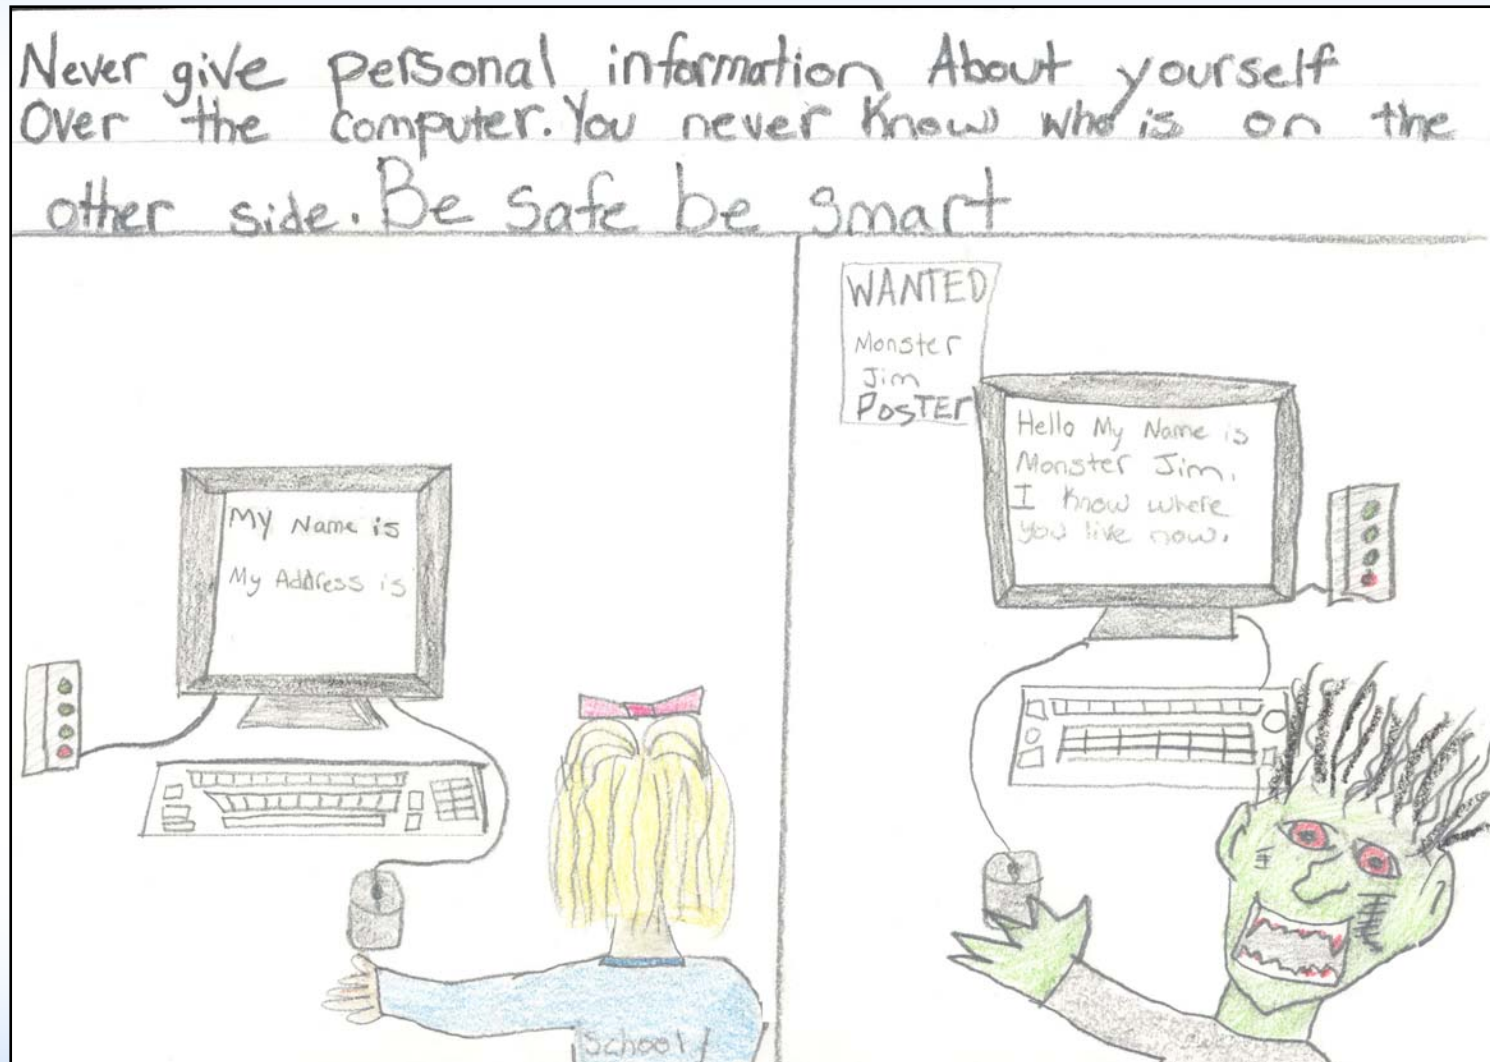 Never give personal information About yourself
Over the computer. You never know who is on the
other side. Be Safe be Smart
My Name is
My Address is
School
WANTED
Monster
Jim
POSTER
Hello My Name is
Monster Jim.
I know where
you live now.